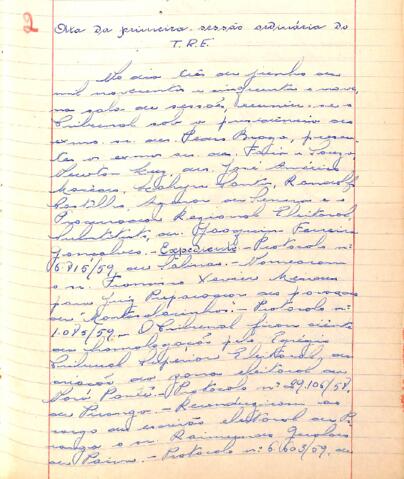 2
Ata da primeira sessão ordinária do
T.R.E.
No dia três de junho de
mil novecentos e cinquenta e nove,
na sala de sessões, reuniu-se o
Tribunal sob a presidência do
exmo. sr. des. Braga, presen-
tes o exmo sr. des.
José Américo
Macedo,
Castilho, e o
Procurador Regional Eleitoral
Substituto, dr. Joaquim Ferreira
Gonçalves. - Expediente - Protocolo nº
6.815/59, de Salinas. - Nomearam
o sr. Francisco Xavier Mendes
para Juiz Preparador do povoado
de Montezuma. - Protocolo nº
1.085/59. - O Tribunal ficou ciente
da homologação pelo Egrégio
Tribunal Superior Eleitoral, da
criação da zona eleitoral de
Protocolo nº 29.106/58,
de Piranga. - Reconduziram ao
cargo de escrivão eleitoral de Pi-
ranga o sr. Raimundo
de Paiva. - Protocolo nº 6.603/59, de